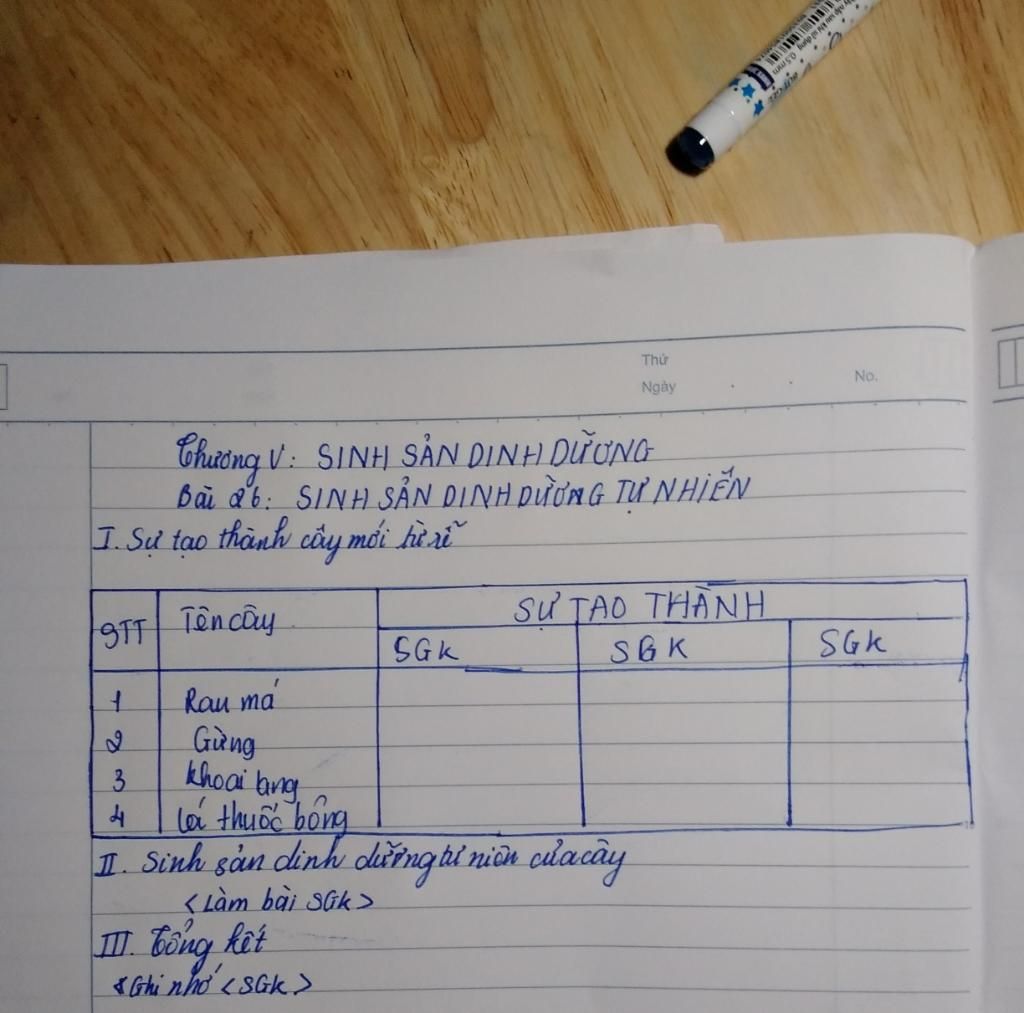 0.5mm
Thứ
Ngày
No.
Chương V: SINH SẢN DINH DƯỠNG
Bài 26: SINH SẢN DINH DƯỠNG TỰ NHIÊN
I. Sự tạo thành cây mới từ rễ
STT Tên cây SỰ TẠO THÀNH
SGK SGK SGK
1 Rau má
2 Gừng
3 Khoai lang
4 Lá thuốc bỏng
II. Sinh sản dinh dưỡng tự niên của cây
<Làm bài SGK>
III. Tổng kết
*Ghi nhớ <SGK>